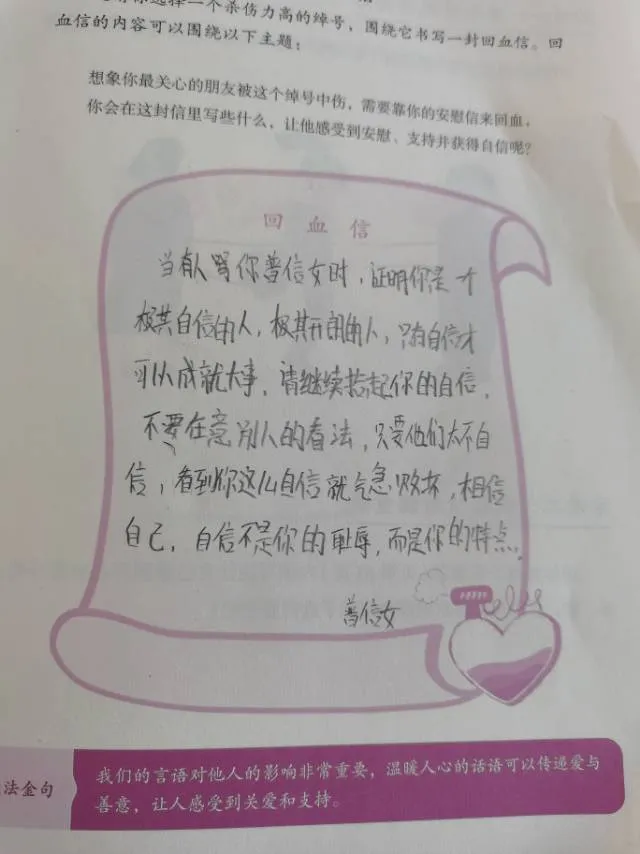 选择一个杀伤力高的绰号，围绕它书写一封回血信。回
血信的内容可以围绕以下主题：
想象你最关心的朋友被这个绰号中伤，需要靠你的安慰信来回血，
你会在这封信里写些什么，让他感受到安慰、支持并获得自信呢？
回血信
当有人骂你普信女时，证明你是个
极其自信的人，极其开朗的人，只有自信才
可以成就大事，请继续拾起你的自信，
不要在意别人的看法，只要他们太不自
信，看到你这么自信就气急败坏，相信
自己，自信不是你的耻辱，而是你的特点。
普信女
法金句
我们的言语对他人的影响非常重要，温暖人心的话语可以传递爱与
善意，让人感受到关爱和支持。